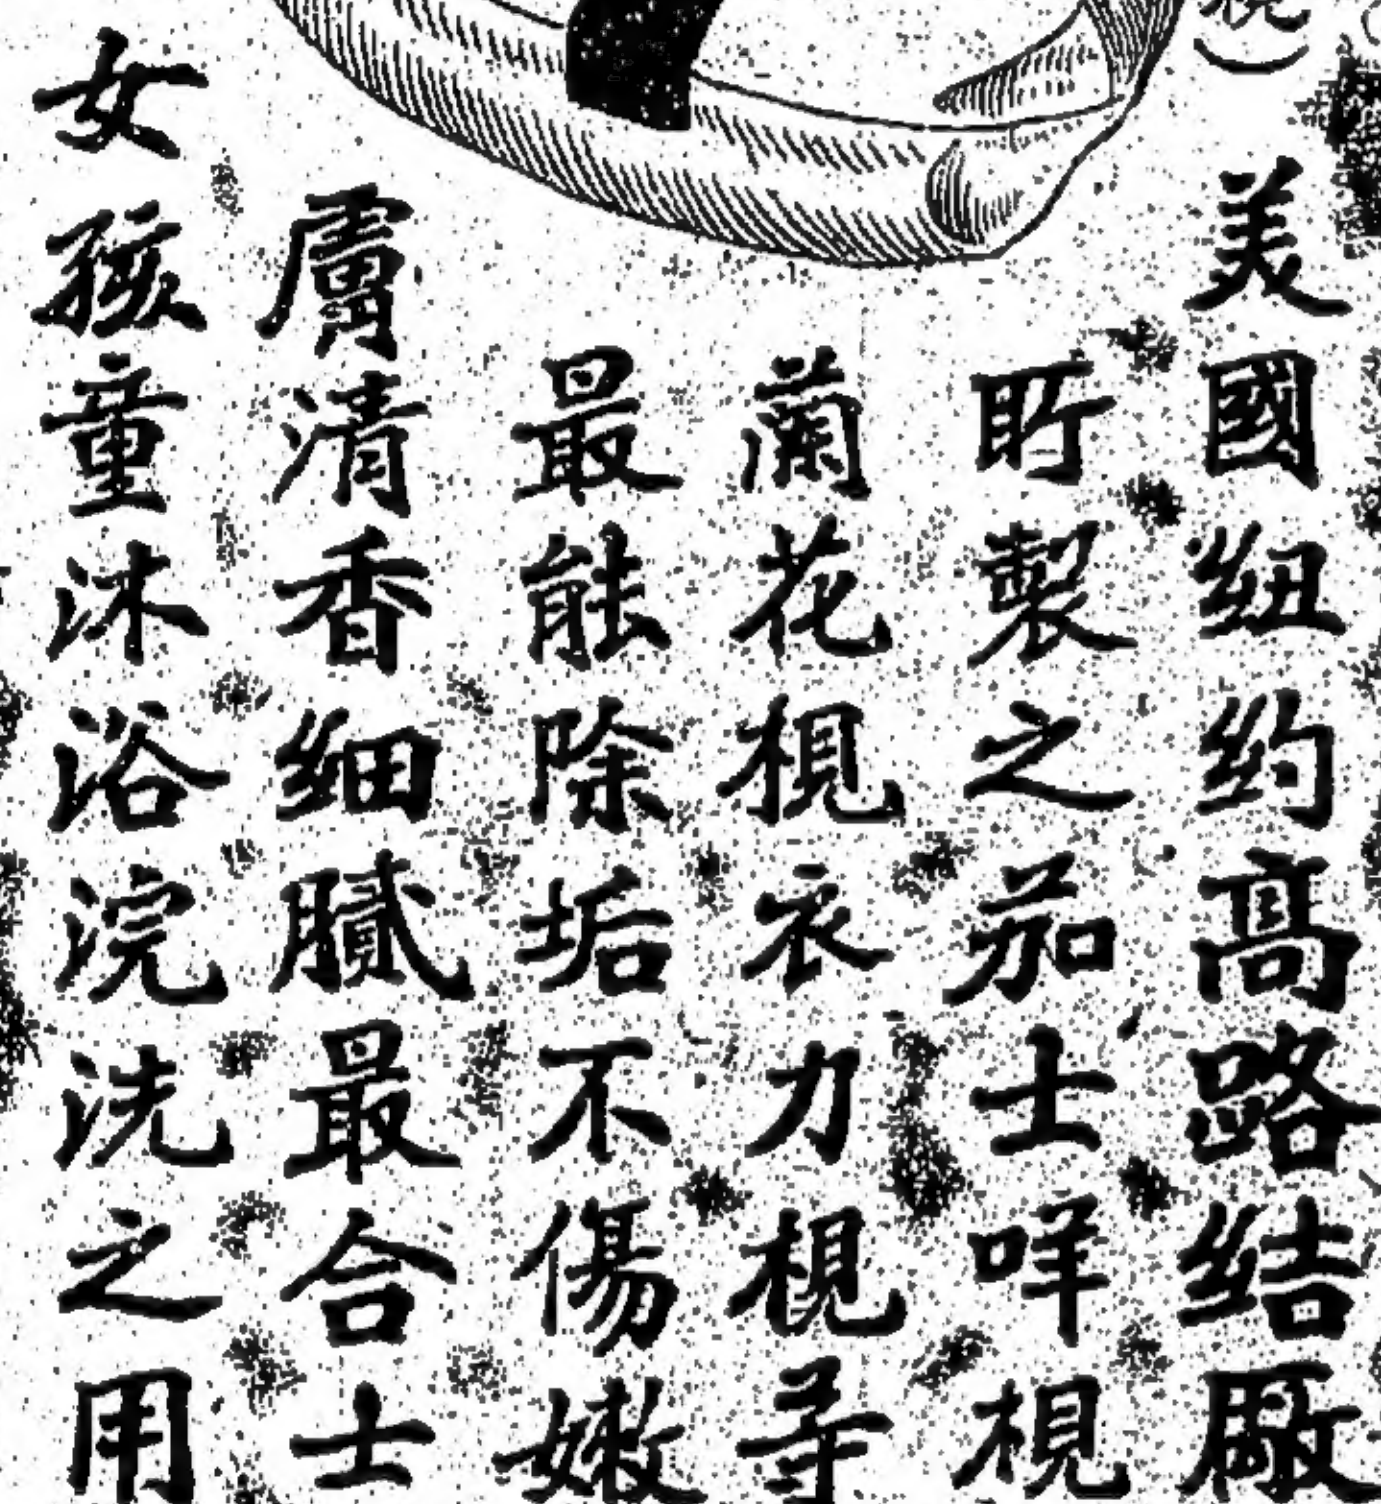 梘）
美國紐約高路结厰
所製之茄士咩梘
蘭花梘衣力梘等
最能除垢不傷嫩
膚清香細膩最合士
女孩童沐浴浣洗之用